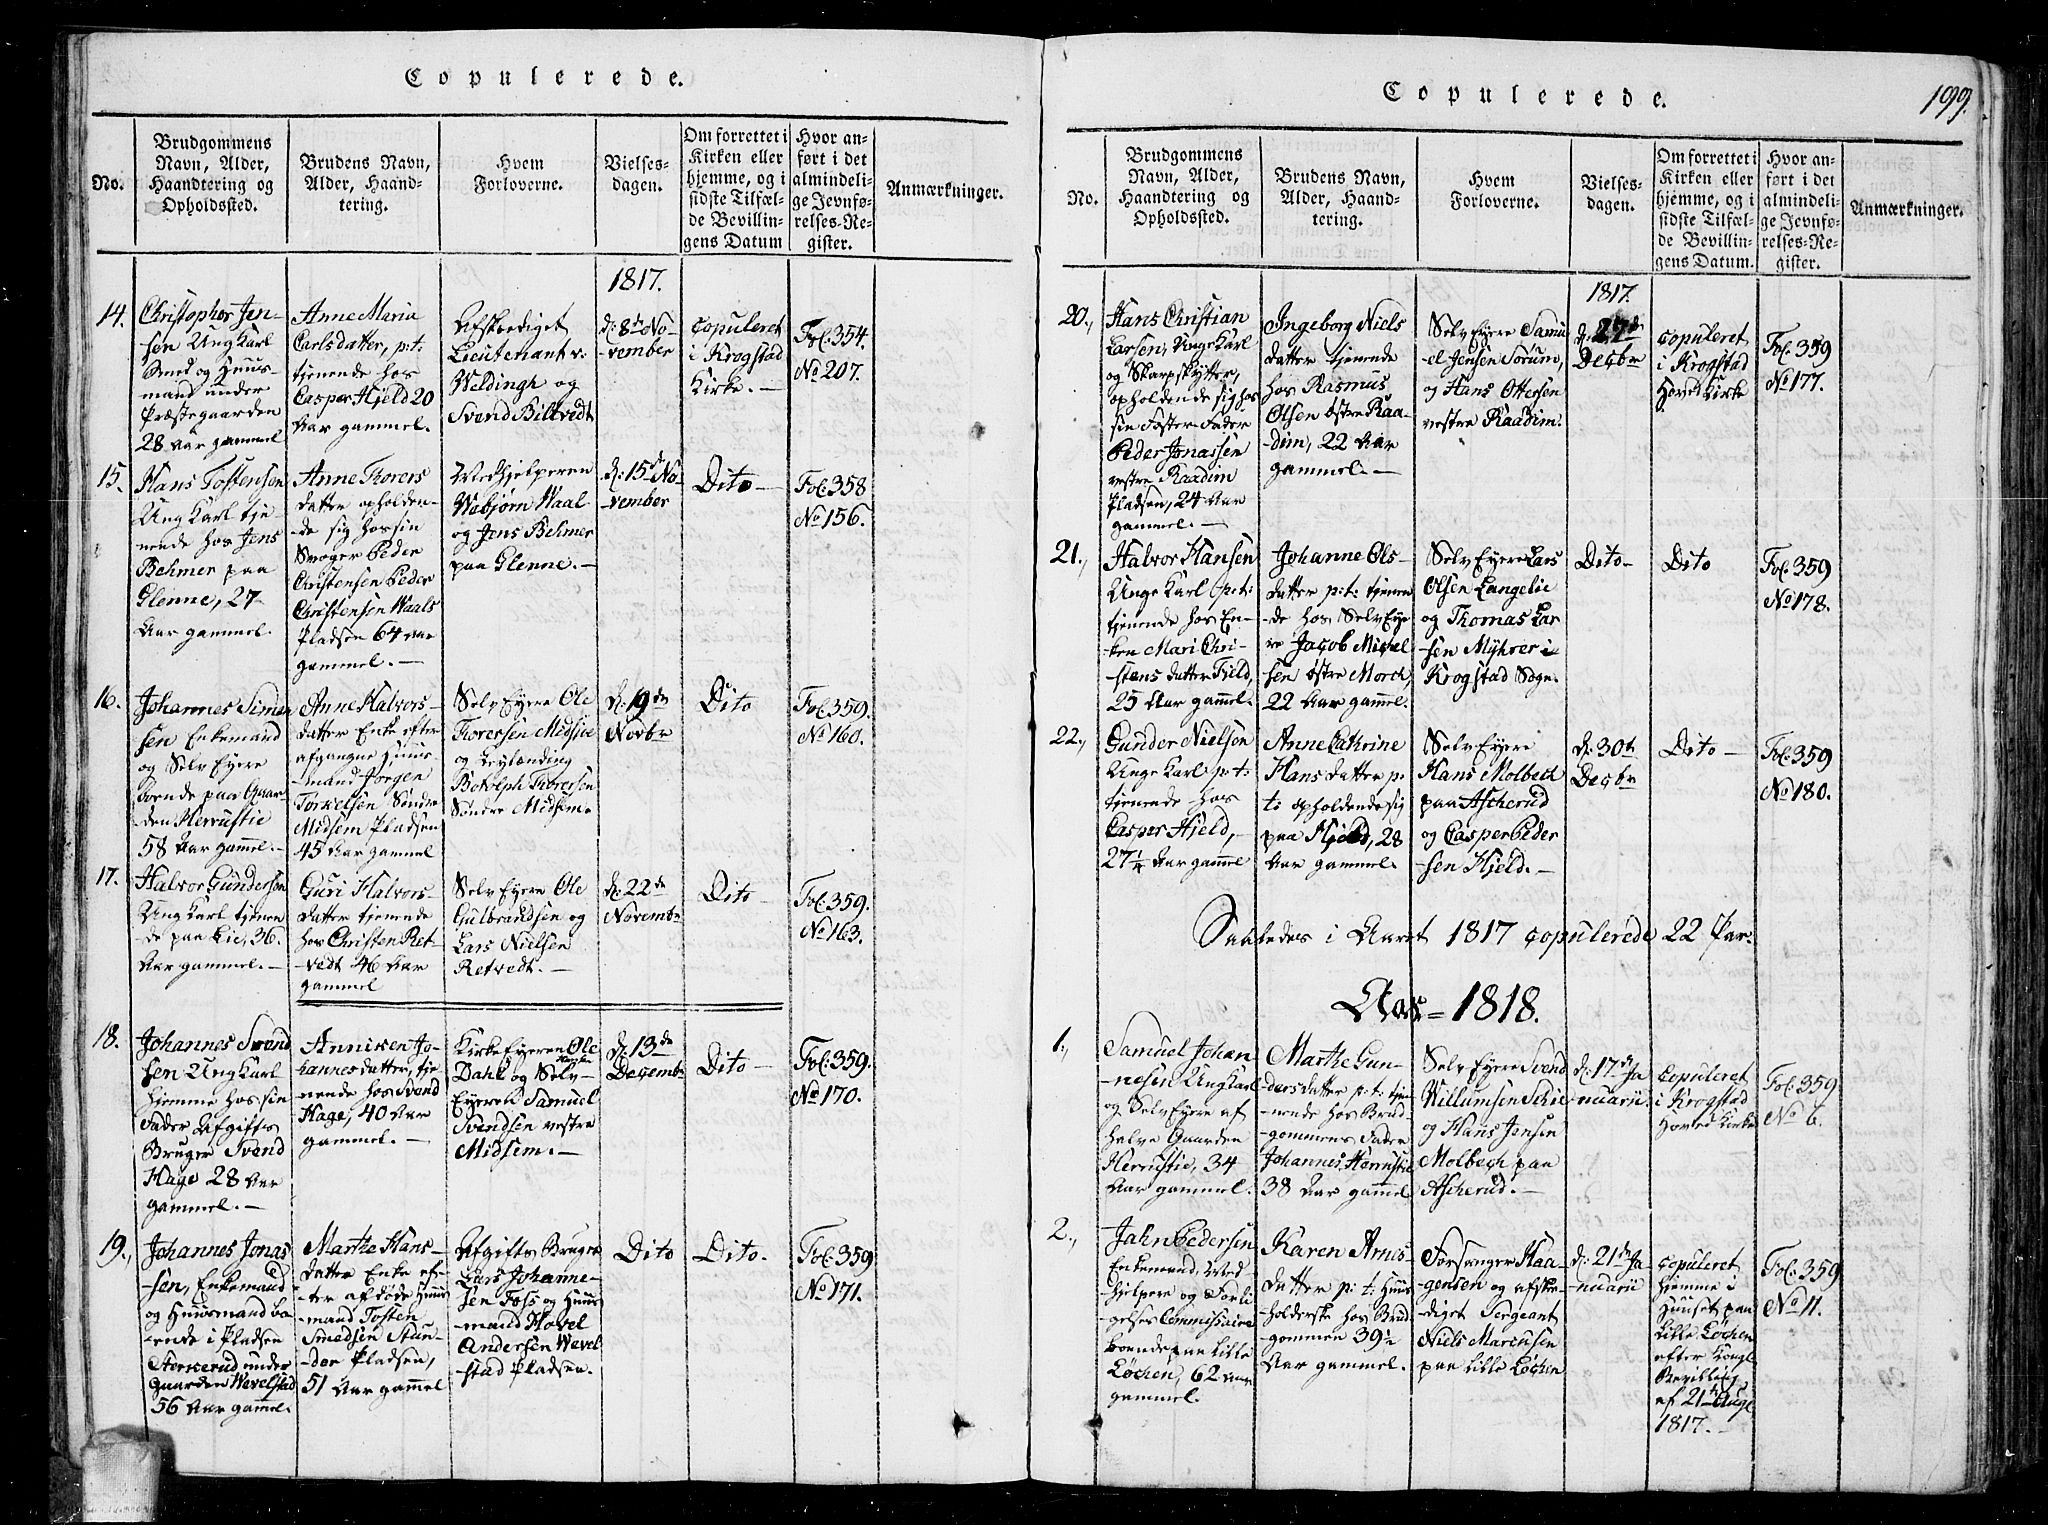 Copulerede.
No.
Brudgommens
Navn, Alder,
Haandtering og
Opholdssted.
Brudens Navn,
Alder, Haand-
tering.
Hvem
Forloverne.
Vielses-
dagen.
Om forrettet i
Kirken eller
hjemme, og i
sidste Tilfæl-
de Bevillin-
gens Datum
Hvor an-
ført i det
almindeli-
ge Jevnfø-
relses-Re-
gister.
Anmærkninger.
1817.
14.
Christopher Jen-
sen Ung Karl
Smed og Huus-
mand under
Præstegaarden
28 Aar gammel
Anne Maria
Carlsdatter, p:t:
tjenende hos
Casper Hjeld 20
Aar gammel.
Afskediget
Lieutenant v:
Weldingh og
Svend Biltvedt
d: 8de No-
vember
copuleret
i Krogstad
Kirke. —
Fol: 354.
No 207.
15.
Hans Tostensen
Ung Karl tje-
nende hos Jens
Behmer paa
Glenne, 27
Aar gammel.
Anne Thorers
datter opholden-
de sig hos sin
Svoger Peder
Christensen Peder
Christensen Waals
Pladsen 64 Aar
gammel. —
Medhjelperen
Webjørn Waal
og Jens Behmer
paa Glenne. —
d: 15de No-
vember
Dito —
Fol: 358
No 156.
16.
Johannes Simen
sen Enkemand
og Selv Eyere
boende paa Gaar-
den Herrustie
58 Aar gammel. —
Anne Halvors-
datter Enke efter
afgangne Huus-
mand Jørgen
Torkelsen Søndre
Midsem Pladsen
45 Aar gammel
Selv Eyere Ole
Thorersen Midsie
og Leylænding
Botolph Thorersen
Søndre Midsem. —
d: 19de
Novbr
Dito
Fol: 359.
No 160.
17.
Halvor Gundersen
Ung Karl tjenen
de paa Lie, 36.
Aar gammel. —
Guri Halvors-
datter tjenende
hos Christen Ret-
vedt 46 Aar
gammel
Selv Eyere Ole
Gulbrandsen og
Lars Nielsen
Retvedt. —
d: 22de
Novembr
Dito —
Fol: 359.
No 163.
18.
Johannes Svend
sen Ung Karl
hjemme hos sin
Fader Afgifts
Bruger Svend
Hage 28 Aar
gammel. —
Annicken Jo-
hannesdatter, tje-
nende hos Svend
Hage, 40 Aar
gammel. —
Kirke Eyeren Ole
Hansen
Dahl og Selv-
Eyeren Samuel
Svendsen vestre
Midsem. —
d: 13de
Decembr
Dito —
Fol: 359.
No 170.
19.,
Johannes Jonas
sen, Enkemand
og Huusmand bo-
ende i Pladsen
under
Gaarden Wevelstad
56 Aar gammel.
Marthe Hans-
datter Enke ef-
ter afdøde Huus
mand Tosten
Smedsen Stun-
der Pladsen,
51 Aar gammel
Afgifts Bruger
Lars Johanne-
sen Foss og Huus
mand Hovel
Andersen Wevel
stad Pladsen.
Dito
Dito.
Fol: 359
No 171.
Copulerede.
199.
No.
Brudgommens
Navn, Alder,
Haandtering og
Opholdssted.
Brudens Navn,
Alder, Haand-
tering.
Hvem
Forloverne.
Vielses-
dagen.
Om forrettet i
Kirken eller
hjemme, og i
sidste Tilfæl-
de Bevillin-
gens Datum.
Hvor an-
ført i det
almindeli-
ge Jevnfø-
relses-Re-
gister.
Anmærkninger.
1817.
20.,
Hans Christian
Larsen, Unge Karl
og Skarpskytter,
opholdende sig hos
sin Foster-Fader
Peder Jonassen
vestre Raadim
Pladsen, 24 Aar
gammel. —
Ingeborg Niels
datter tjenende
hos Rasmus
Olsen østre Raa-
dim, 22 Aar
gammel. —
Selv Eyere Samu
el Jensen Sørum,
og Hans Ottersen
vestre Raadim.
d: 27de
Decbr
copuleret
i Krogstad
Hoved Kirke
Fol: 359
No 177.
21.,
Halvor Hansen
Unge Karl p:t:
tjenende hos En-
ken Mari Chri-
stens datter Field,
25 Aar gammel.
Johanne Ols-
datter p:t: tjenen
de hos Selv Eye
re Jacob Michel
sen østre Morch,
22 Aar gammel.
Selv Eyere Lars
Olsen Langelie
og Thomas Lar
sen Myhrer i
Krogstad Sogn.
Dito —
Dito
Fol: 359
No 178.
22.,
Gunder Nielsen
Unge Karl p:t:
tjenende hos
Casper Hjeld,
27¼ Aar gammel
Anne Cathrine
Hans datter p:
t: opholdende sig
paa Hjeld, 28
Aar gammel.
Selv Eyere
Hans Molbech
paa Ascherud
og Casper Peder
sen Hjeld. —
d: 30te
Decbr
Dito —
Fol: 359
No 180.
Saaledes i Aaret 1817 copulerede 22 Par.
Aar = 1818.
1.,
Samuel Johan
nesen Ung Karl
og Selv Eyere af
halve Gaarden
Herrustie, 34
Aar gammel.
Marthe Gun-
dersdatter p:t: tje
nende hos Brud-
gommens Fader
Johannes Herrustie
38 Aar gammel
Selv Eyere Svend
Willumsen Schie
og Hans Jensen
Molbech paa
Ascherud. —
d: 17de Ja
nuarii
copuleret
i Krogstad
Hoved Kirke
Fol: 359
No 6.
2.,
Jahn Pedersen
Enkemand, Med
hjelpere og Forli
gelses Commissaire
boende paa Lille
Løchen, 62 Aar
gammel.
Karen Arnis
datter p: t: Huus
holderske hos Brud
gommen 39½
Aar gammel.
Forsanger Haa-
gensen og afske-
diget Sergeant
Niels Marcusen
paa Lille Løchen
d: 21de Ja
nuarii
copuleret
hjemme i
Huuset paa
Lille Løchen
efter Kongl.
Bevilling
af 21de Aug
1817. —
Fol: 359
No 11.